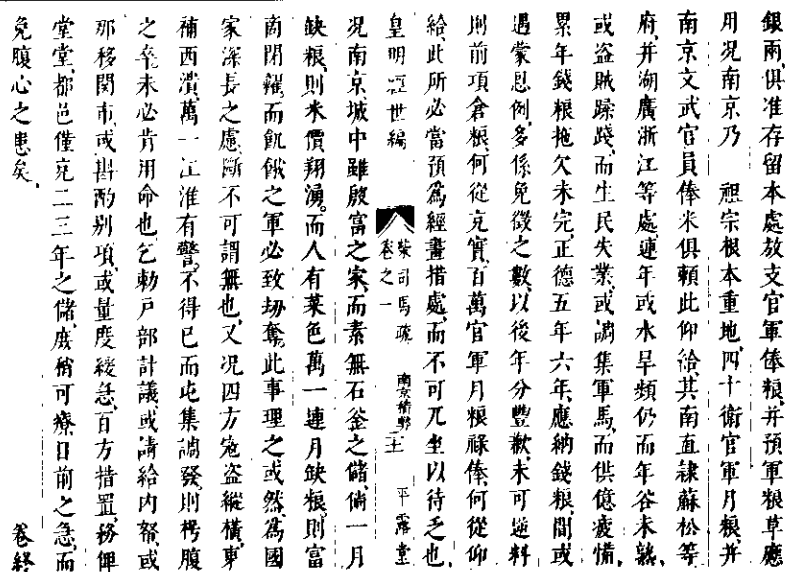 銀兩俱准存留本處放支官軍俸粮并預軍粮草應
用况南京乃 祖宗根本重地四十衛官軍月粮并
南京文武官員俸米俱頼此仰給其南直隷蘇松等
府并湖廣浙江等處連年或水旱頻仍而年谷未熟
或盗賊蹂踐而生民失業或調集軍馬而供億疲憊
累年錢粮拖欠未完正德五年六年應納錢粮間或
遇蒙恩例多係免徵之數以後年分豐歉未可逆料
則前項倉粮何從充實百萬官軍月粮禄俸何從仰
給此所必當預爲經畫措處而不可兀坐以待乏也
皇明經世編
柴司馬疏
卷之一
南京積弊
十
平露堂
况南京城中雖殷富之家而素無石釜之儲倘一月
缺粮則米價翔湧而人有菜色萬一連月缺粮則富
商閉糴而飢餓之軍必致刼奪此事理之或然爲國
家深長之慮斷不可謂無也又况四方宼盗縱横東
補西潰萬一江淮有警不得已而屯集調發則枵腹
之卒未必肯用命也乞勅戸部計議或請給内帑或
那移関市或斟酌别項或量度緩急百方措置務俾
堂堂都邑僅充二三年之儲庶稍可療目前之急而
免腹心之患矣
卷終